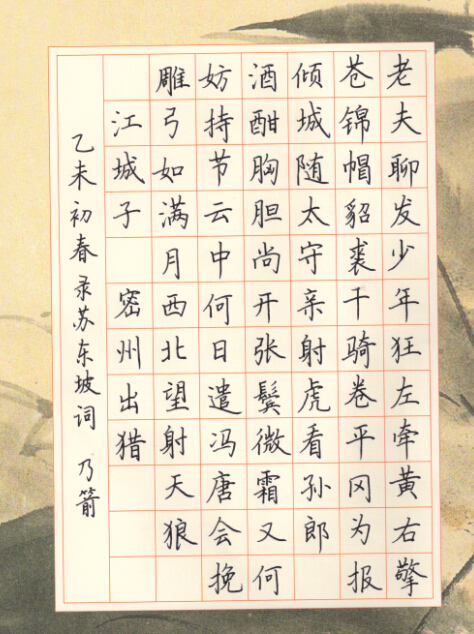 老夫聊发少年狂左牵黄右擎
苍锦帽貂裘千骑卷平冈为报
倾城随太守亲射虎看孙郎
酒酣胸胆尚开张鬓微霜又何
妨持节云中何日遣冯唐会挽
雕弓如满月西北望射天狼
江城子 密州出猎
乙未初春录苏东坡词 乃箭